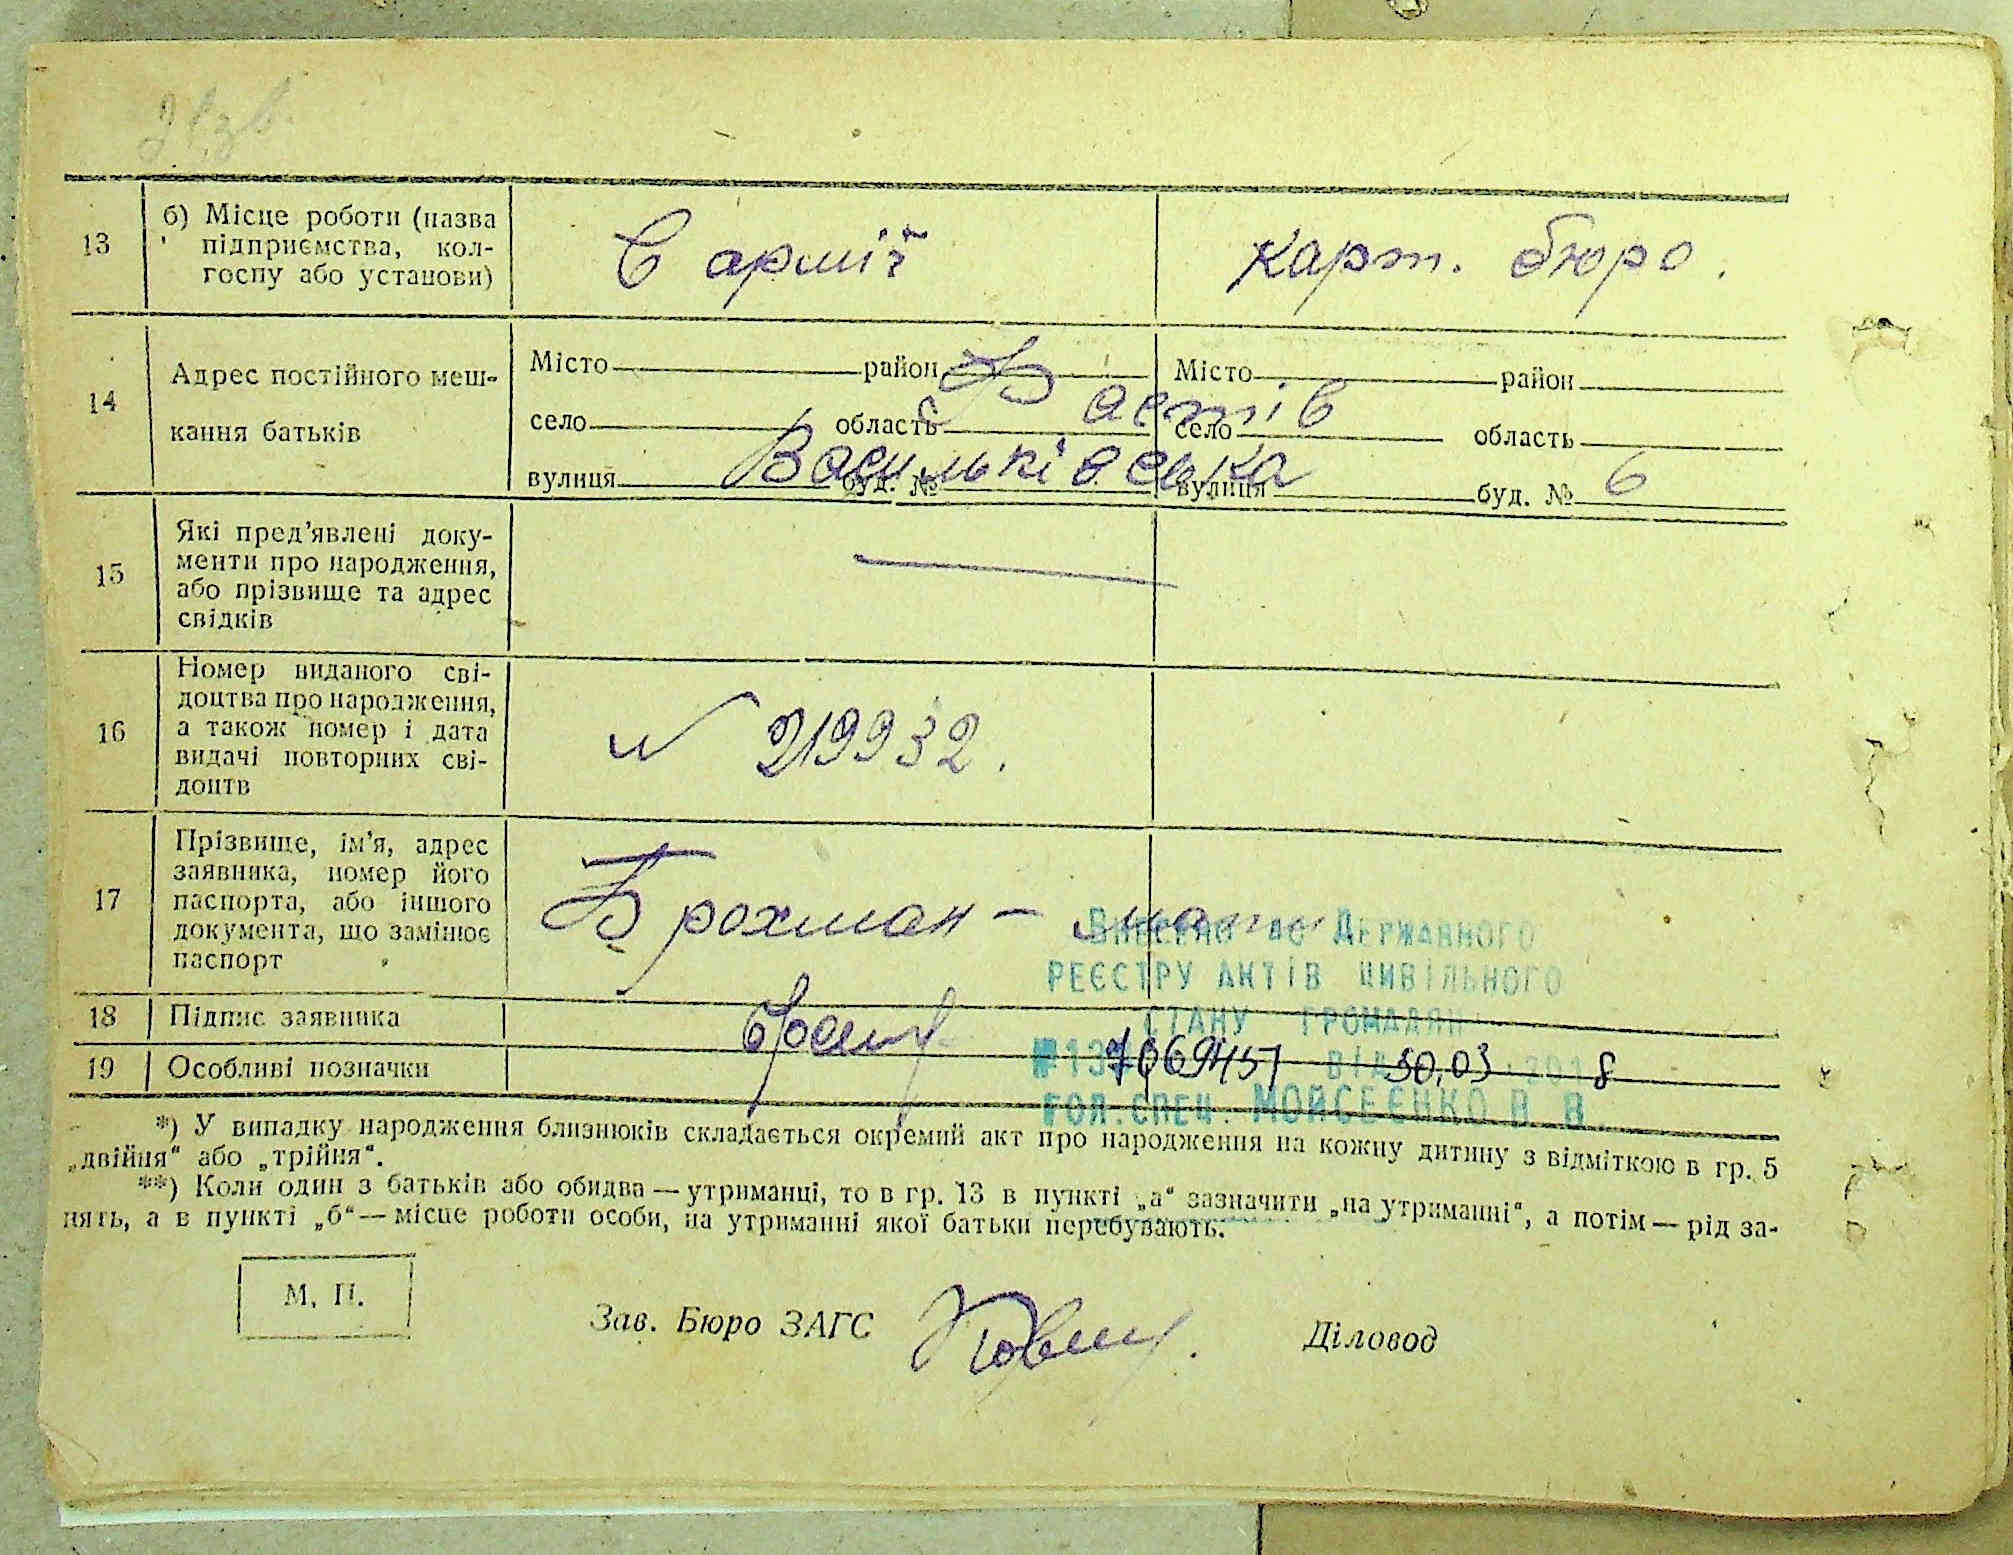 13
б) Місце роботи (назва
підприємства, кол-
госпу або установи)
В армії
карт. бюро.
14
Адрес постійного меш-
кання батьків
Місто район Місто район
Фастів
село область село область
Васильківська
вулиця буд. № вулиця буд. № 6
15
Які пред'явлені доку-
менти про народження,
або прізвище та адрес
свідків
16
Номер виданого сві-
доцтва про народження,
а також номер і дата
видачі повторних сві-
доцтв
№ 219932.
17
Прізвище, ім'я, адрес
заявника, номер його
паспорта, або іншого
документа, що замінює
паспорт
Брохман - мати
Внесено до Державного
реєстру актів цивільного
стану громадян
18 Підпис заявника
19 Особливі позначки
від 30.03 2018
гол. спец. Мойсеєнко В В
*) У випадку народження близнюків складається окремий акт про народження на кожну дитину з відміткою в гр. 5
„двійня“ або „трійня“.
**) Коли один з батьків або обидва — утриманці, то в гр. 13 в пункті „а“ зазначити „на утриманні“, а потім — рід за-
нять, а в пункті „б“ — місце роботи особи, на утриманні якої батьки перебувають.
М. П.
Зав. Бюро ЗАГС
Діловод